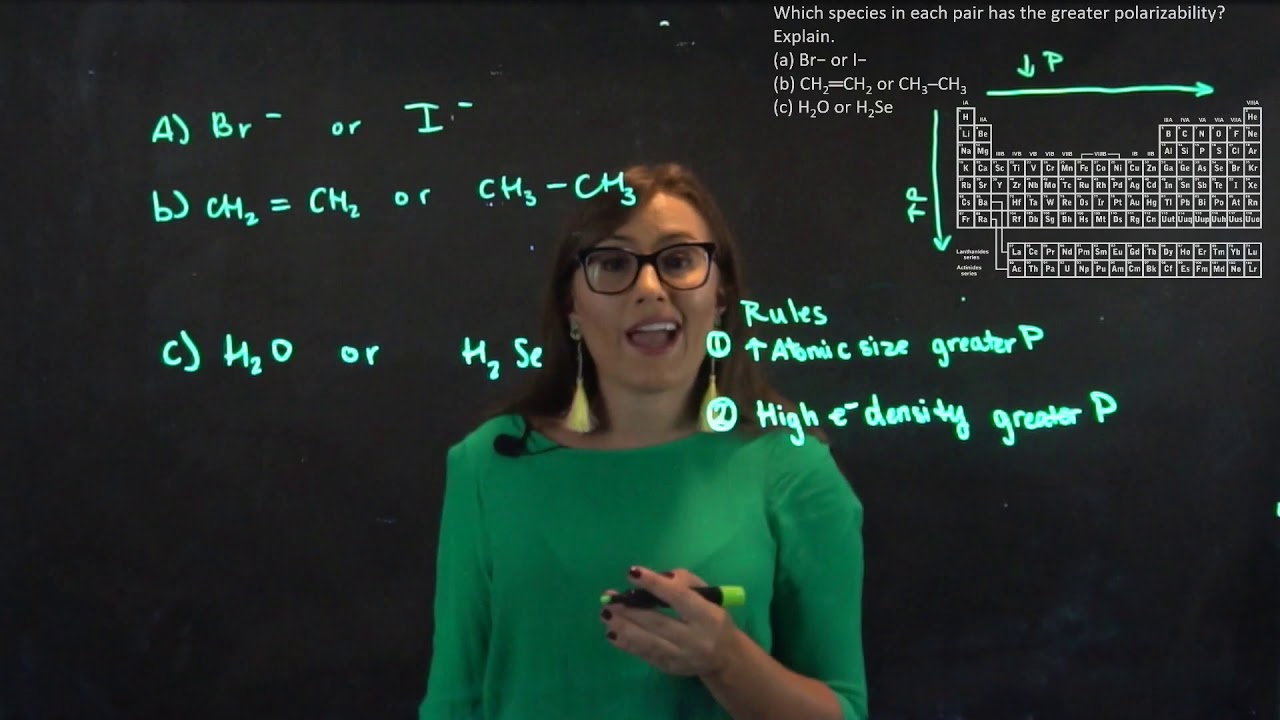 Which species in each pair has the greater polarizability?
Explain.
(a) Br− or I−
(b) CH₂═CH₂ or CH₃–CH₃
(c) H₂O or H₂Se
↓ P
↑ P
A) Br⁻ or I⁻
b) CH₂ = CH₂ or CH₃ – CH₃
c) H₂O or H₂Se
Rules
① ↑ Atomic size greater P
② High e⁻ density greater P
IA VIIIA
H IIA IIIA IVA VA VIA VIIA He
Li Be B C N O F Ne
Na Mg IIIB IVB VB VIB VIIB VIIIB IB IIB Al Si P S Cl Ar
K Ca Sc Ti V Cr Mn Fe Co Ni Cu Zn Ga Ge As Se Br Kr
Rb Sr Y Zr Nb Mo Tc Ru Rh Pd Ag Cd In Sn Sb Te I Xe
Cs Ba Hf Ta W Re Os Ir Pt Au Hg Tl Pb Bi Po At Rn
Fr Ra Rf Db Sg Bh Hs Mt Ds Rg Cn Uut Uuq Uup Uuh Uus Uuo
Lanthanides series La Ce Pr Nd Pm Sm Eu Gd Tb Dy Ho Er Tm Yb Lu
Actinides series Ac Th Pa U Np Pu Am Cm Bk Cf Es Fm Md No Lr